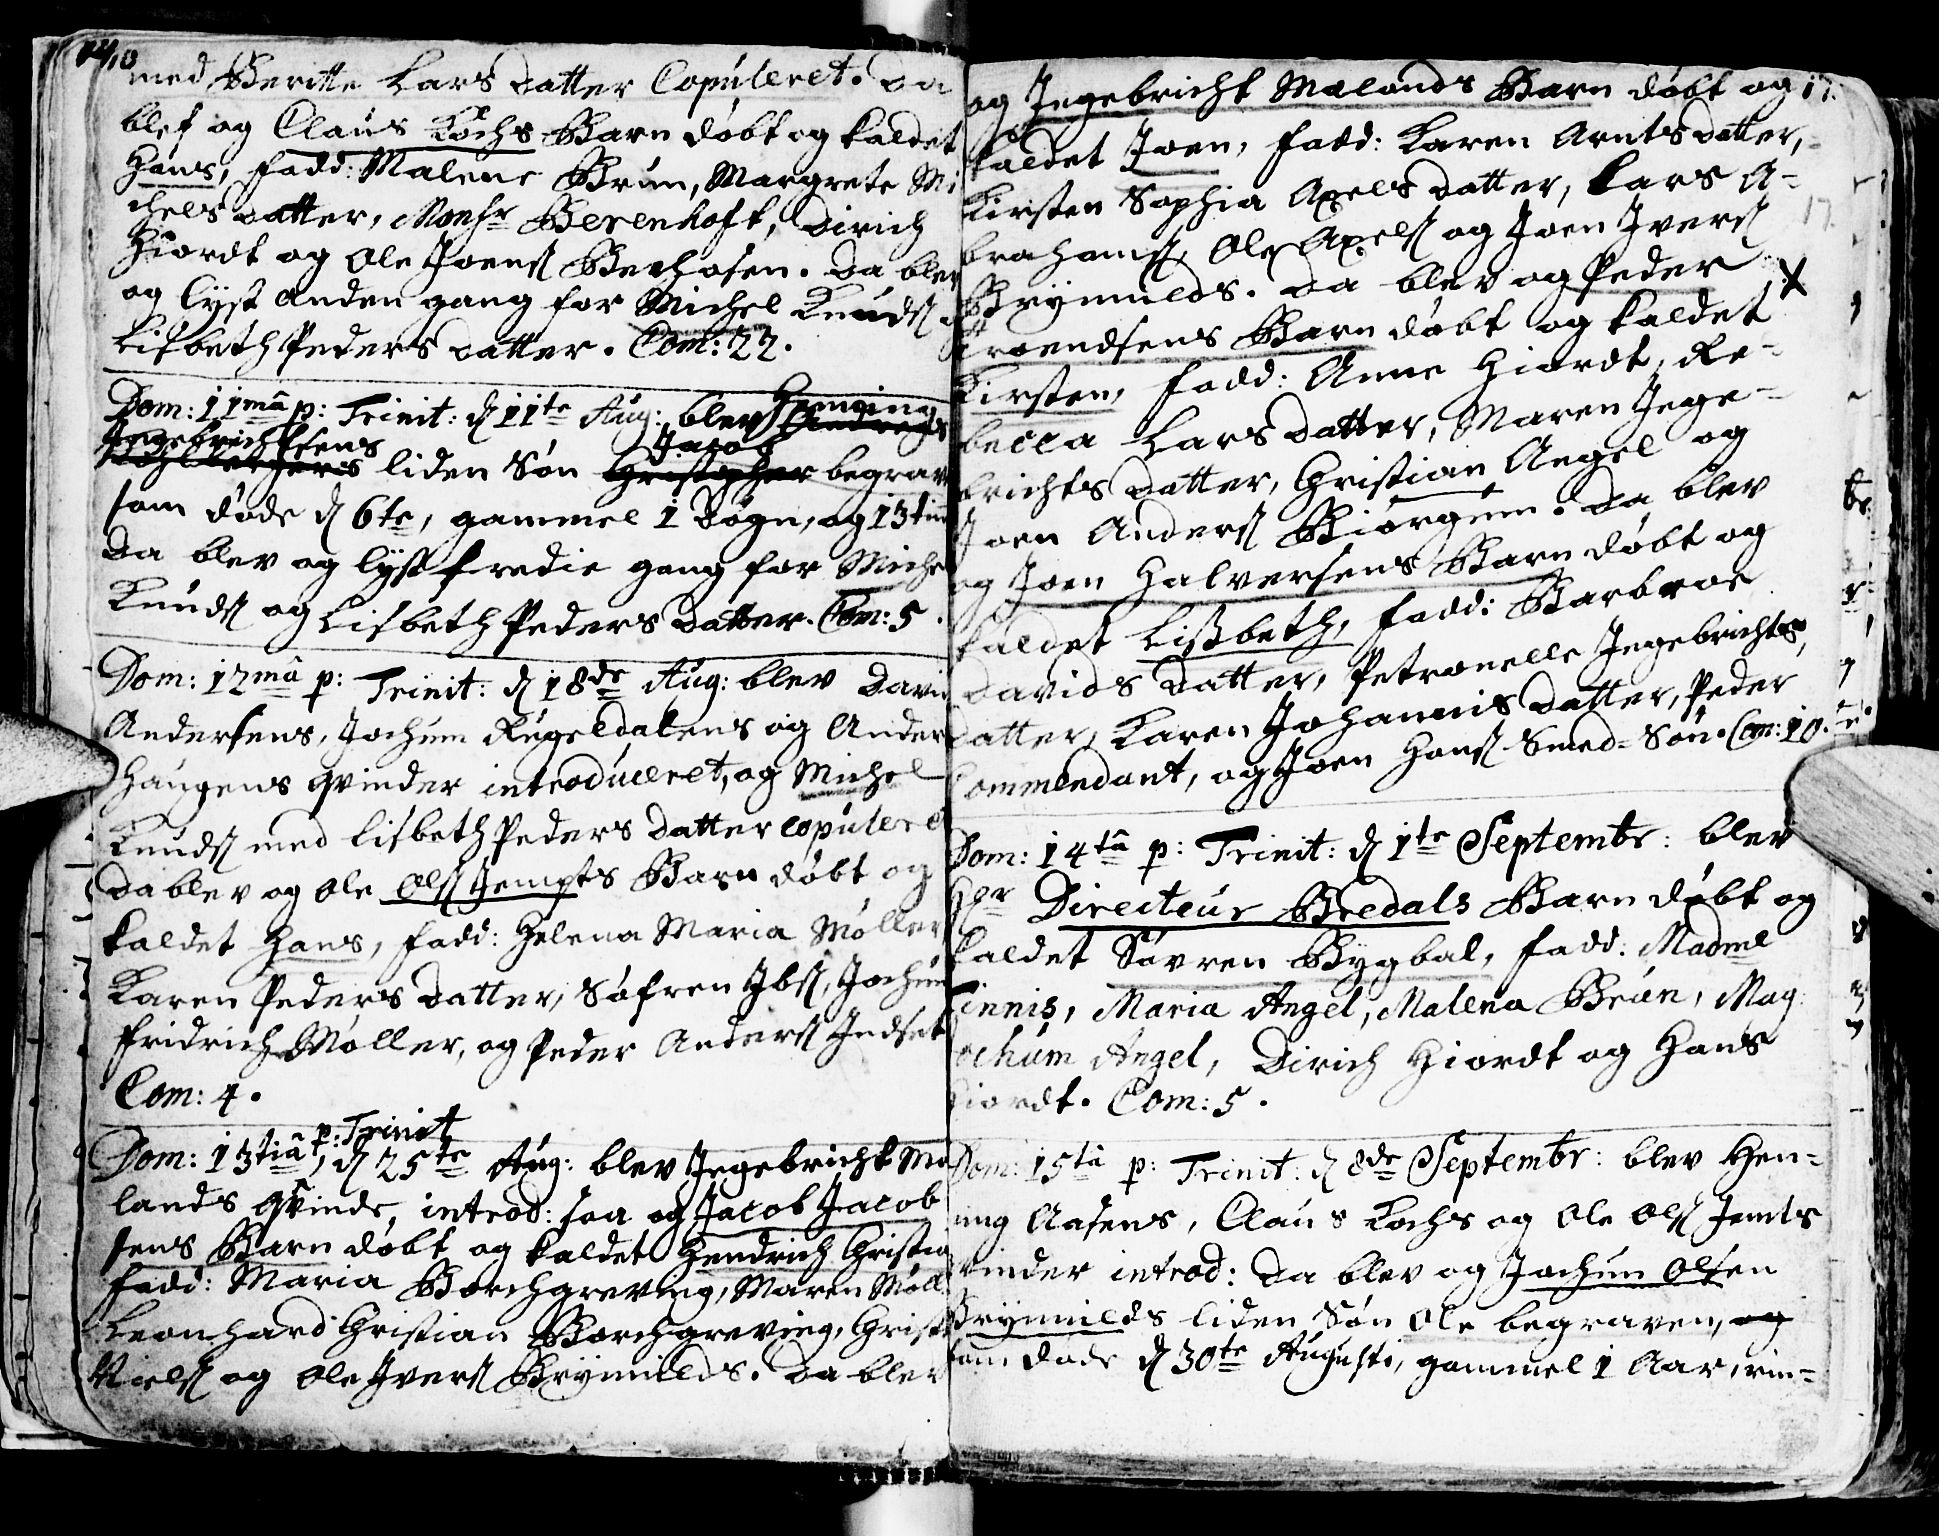 med Beritte Lars datter Copuleret. Da
blef og Claus Kochs Barn døbt og kaldet
Hans, fadd: Malene Brun, Margrete Mi
chels datter, Monsr Berenhoft, Dirich
Hiordt og Ole Joens Berhosen. Da blev
og lyst anden gang for Michel Knuds
Lisbeth Peders datter. Com: 22.
Dom: 11mâ p: Trinit: d 11te Aug: blev Henning
Ingebrichtsens liden Søn Jacob begrav
som døde d 6te, gammel 1 Døgn, og 13 tim
Da blev og lyst tredie gang for Miche
Knuds og Lisbeth Peders datter. Com: 5.
Dom: 12mâ p: Trinit: d 18de Aug: blev Davi
Andersens, Jochum Rugeldalens og Ander
Haugens qvinder introduceret, og Michel
Knuds med Lisbeth Peders datter copulere
Da blev og Ole Ols Jempts Barn døbt og
kaldet Hans, fadd: Helena Maria Møller
Karen Peders datter, Søfren Ibs, Jochum
Fridrich Møller, og Peder Anders Indset
Com: 4.
p: Trinit
Dom: 13tiâ, d 25te Aug: blev Ingebricht Ma
lands qvinde, introd: saa og Jacob Jacob
sens Barn døbt og kaldet Hendrich Christia
fadd: Maria Borchgreving, Maren Møll
Leonhard Christian Borchgreving, Christ
Niels og Ole Ivers Brynnilds. Da blev
og Ingebricht Malands Barn døbt og 17.
kaldet Joen, fadd: Karen Arnts datter,
Kirsten Sophia Axels datter, Lars A-
brahams, Ole Axels og Joen Ivers
Brynnilds. Da blev og Peder
Troendsens Barn døbt og kaldet
Kirsten, fadd: Anne Hiordt, Re-
becca Lars datter, Maren Inge-
brichts datter, Christian Angel og
Joen Anders Biørgen. Da blev
og Joen Halversens Barn døbt og
kaldet Lissbeth, fadd: Barbroe
Davids datter, Petronelle Ingebrichts
datter, Karen Johannis datter, Peder
Commendant, og Joen Hans Smed-Søn. Com: 10.
Dom: 14tâ p: Trinit: d 1te Septembr: blev
Hr Directeur Bredals Barn døbt og
kaldet Søvren Bygbal, fadd: Madme
Finnis, Maria Angel, Malena Brun, Mag
ochum Angel, Dirich Hiordt og Hans
Hiordt. Com: 5.
Dom: 15tâ p: Trinit: d 8de Septembr: blev Hen-
ning Aasens, Claus Kochs og Ole Ols Jemts
qvinder introd: Da blev og Jochum Olsen
Brynnilds liden Søn Ole begraven, og
som døde d 30te Augusti, gammel 1 Aar, rin-